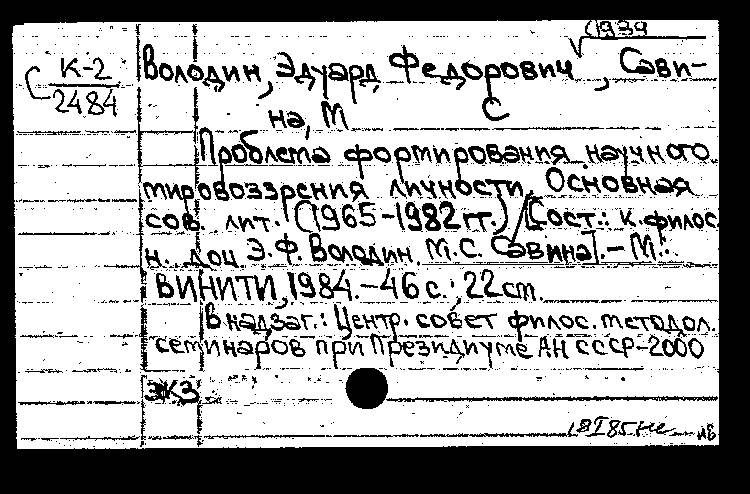 (1939
К-2
2484
Володин, Эдуард Федорович, Сави-
на, М С
Проблема формирования научного
мировоззрения личности. Основная
сов. лит. (1965-1982 гг.) / [Сост.: к. филос.
н. доц Э. Ф. Володин, М. С. Савина]. - М.:
ВИНИТИ, 1984. - 46 с.; 22 см.
В надзаг.: Центр. совет филос. методол.
семинаров при Президиуме АН СССР - 2000
ЭКЗ
18 I 85